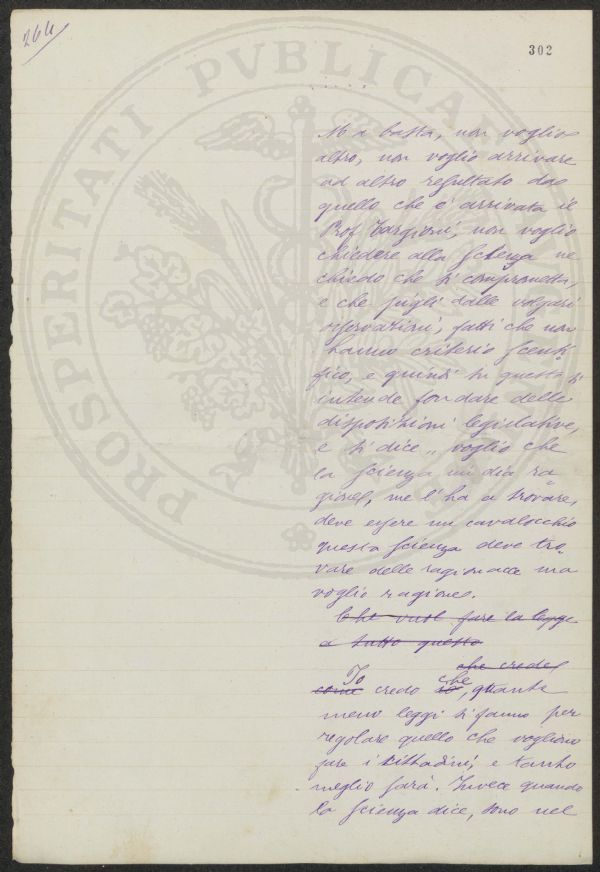 264
302
PROSPERITATI PVBLICAE
Ma basta, non voglio
altro, non voglio arrivare
ad altro resultato da
quello che è arrivata il
Prof Targioni, non voglio
chiedere alla scienza ne
chiedo che si comprometta,
e che pigli dalle volgari
osservazioni, fatti che non
hanno criterio scenti
fico, e quindi su questa si
intende fondare delle
disposizioni legislative,
e si dice „ voglio che
la scienza mi dia ra
gione, me l'ha a trovare,
deve essere un cavalocchio
questa scienza deve tro
vare delle ragionacce ma
voglio ragione.
Che vuol fare la legge
a tutto questo
che crede
Io che
come credo io, quante
meno leggi si fanno per
regolare quello che vogliono
fare i cittadini, e tanto
meglio sarà. Invece quando
la scienza dice, sono nel